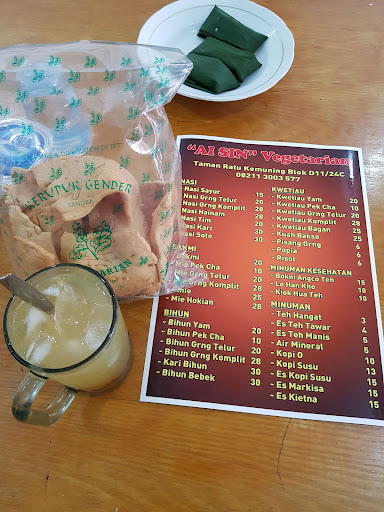 KERUPUK GENDER
BANGKA
VEGETARIAN
"AI SIN" Vegetarian
Taman Ratu Kemuning Blok D11/24C
08211 3003 577
NASI
- Nasi Sayur 15
- Nasi Grng Telur 20
- Nasi Grng Komplit 28
- Nasi Hainam
- Nasi Tim
- Nasi Kari
- Nasi Soto
- Mie Pek Cha
- Mie Grng Telur
- Mie Grng Komplit 28
- Mie Hokian
BIHUN
- Bihun Yam 20
- Bihun Pek Cha 10
- Bihun Grng Telur 20
- Bihun Grng Komplit 28
- Kari Bihun 30
- Bihun Bebek 30
KWETIAU
- Kwetiau Yam 20
- Kwetiau Pek Cha 10
- Kwetiau Grng Telur 20
- Kwetiau Grng Komplit 28
- Kwetiau Bagan 25
- Kuah Bakso 25
- Pisang Grng
- Popia
- Risol
MINUMAN KESEHATAN
- Bokni Angco Teh 10
- Lo Han Kho 10
- Kiok Hua Teh 10
MINUMAN
- Teh Hangat 3
- Es Teh Tawar 4
- Es Teh Manis 5
- Air Mineral 5
- Kopi O 8
- Kopi Susu 10
- Es Kopi Susu 13
- Es Markisa 15
- Es Kietna 15